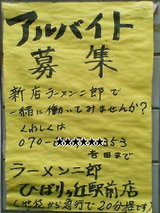 アルバイト
募集
新店ラーメン二郎で
一緒に働いてみませんか?
くわしくは
070-
353
吉田まで
ラーメン二郎
ひばりヶ丘駅前店
(池袋から急行で20分程です)